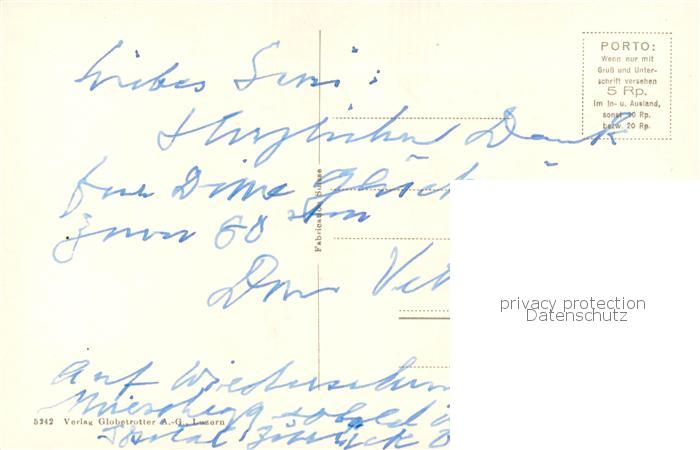 Liebes Susi:
Herzlichen Dank
für Deine Glück
zum 60 sten
Dein Vet
Auf Wiedersehen
sobald
Spital zurück
PORTO:
Wenn nur mit
Gruß und Unter-
schrift versehen
5 Rp.
im In- u. Ausland,
sonst 10 Rp.
bezw. 20 Rp.
Fabrication Suisse
5242 Verlag Globetrotter A.-G., Luzern
privacy protection
Datenschutz